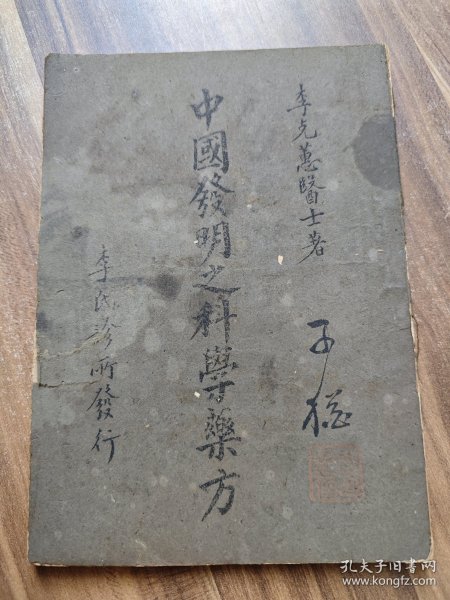 李克蕙醫士著
中國發明之科學藥方
李氏診所發行
子
孔夫子旧书网
www.kongfz.com